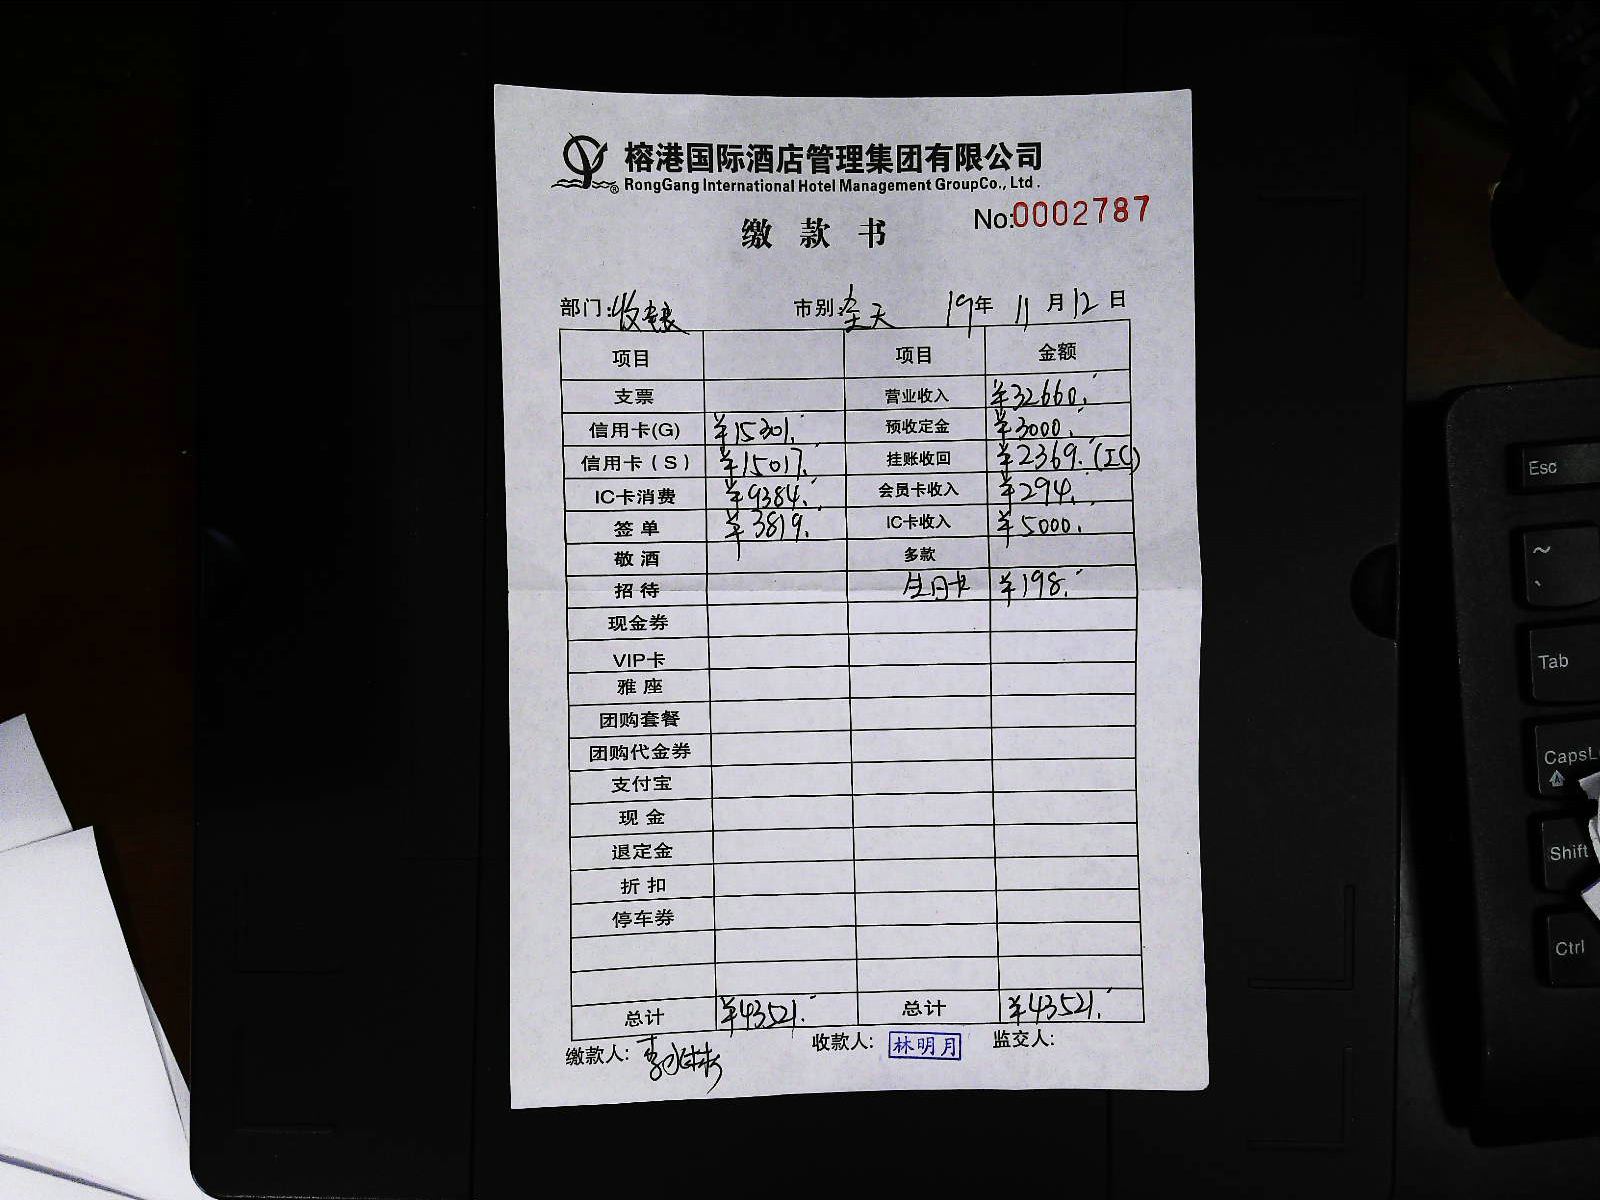 榕港国际酒店管理集团有限公司
RongGang International Hotel Management GroupCo., Ltd .
No:0002787
缴 款 书
部门:收银 市别:全天 19年 11月12日
项目 项目 金额
支票 营业收入 ¥32660.
信用卡(G) ¥15301. 预收定金 ¥3000.
信用卡(S) ¥15017. 挂账收回 ¥2369.(IC)
IC卡消费 ¥9384. 会员卡收入 ¥294.
签 单 ¥3819. IC卡收入 ¥5000.
敬 酒 多款
招 待 生日卡 ¥198.
现金券
VIP卡
雅 座
团购套餐
团购代金券
支付宝
现 金
退定金
折 扣
停车券
总计 ¥43521. 总计 ¥43521.
缴款人: 收款人: 林明月 监交人:
Esc
~
、
Tab
CapsL
Shift
Ctrl